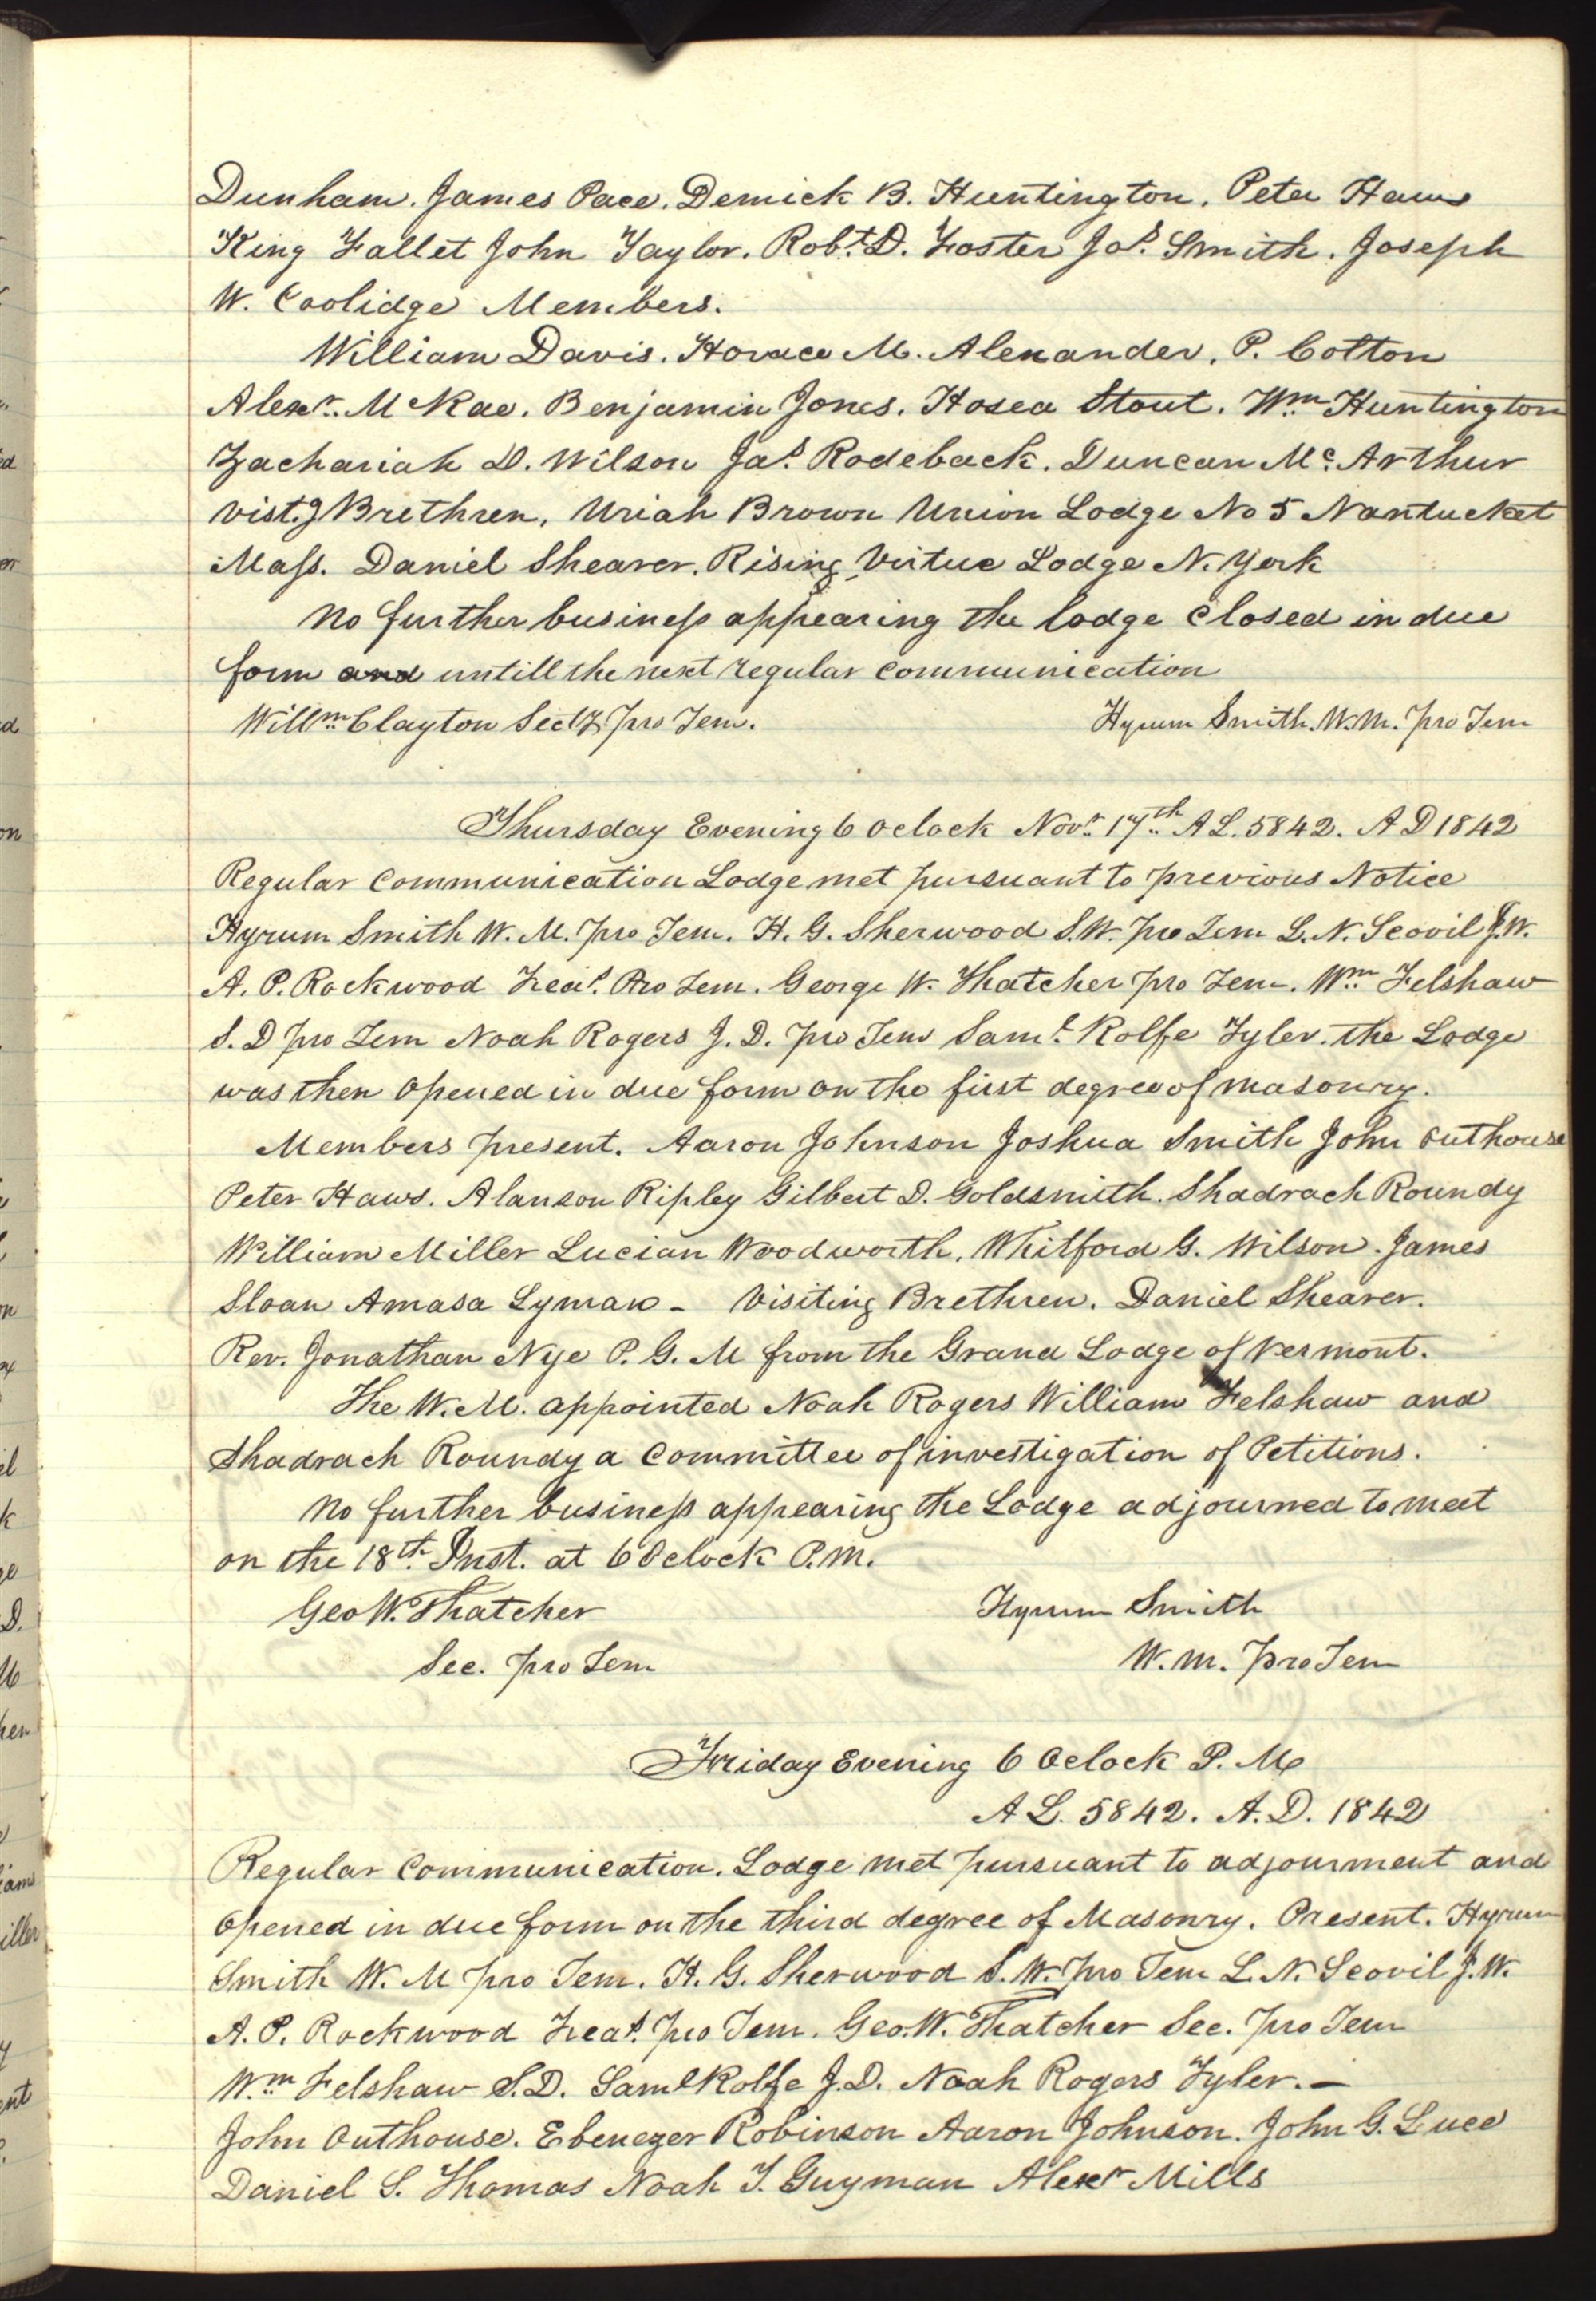 Dunham. James Pace. Demick B. Huntington. Peter Haws
King Fallet John Taylor. Robt. D. Foster Jos. Smith. Joseph
W. Coolidge Members.
William Davis. Horace M. Alexander. P. Cotton
Alexr. McRae. Benjamin Jones. Hosea Stout. Wm. Huntington
Zachariah D. Wilson Jas. Rodeback. Duncan Mc. Arthur
vist.g Brethren, Uriah Brown Union Lodge No 5 Nantucket
Mass. Daniel Shearer. Rising Virtue Lodge N. York
No further business appearing the lodge closed in due
form and untill the next regular communication
Willm. Clayton Secty Pro Tem.
Hyrum Smith. W.M. pro Tem
Thursday Evening 6 oclock Novr. 17th. A L. 5842. A D 1842
Regular Communication Lodge met pursuant to previous Notice
Hyrum Smith W. M. pro Tem. H. G. Sherwood S.W. Pro Tem L. N. Scovil J.W.
A. P. Rockwood Treas. Pro Tem. George W. Thatcher pro Tem. Wm. Felshaw
S. D pro Tem Noah Rogers J. D. Pro Tem Saml. Rolfe Tyler. the Lodge
was then opened in due form on the first degree of masonry.
Members present. Aaron Johnson Joshua Smith John Outhouse
Peter Haws. Alanson Ripley Gilbert D. Goldsmith. Shadrach Roundy
William Miller Lucian Woodworth. Whitford G. Wilson. James
Sloan Amasa Lyman - Visiting Brethren. Daniel Shearer.
Rev. Jonathan Nye P. G. M from the Grand Lodge of Vermont.
The W. M. appointed Noah Rogers William Felshaw and
Shadrach Roundy a Committee of investigation of Petitions.
No further business appearing the Lodge adjourned to meet
on the 18th. Inst. at 6 Oclock P.M.
Geo W. Thatcher
Hyrum Smith
Sec. pro Tem
W. M. Pro Tem
Friday Evening 6 Oclock P. M
A L. 5842. A. D. 1842
Regular Communication. Lodge met pursuant to adjourment and
opened in due form on the third degree of Masonry. Present. Hyrum
Smith W. M pro Tem. H. G. Sherwood S. W. Pro Tem L. N. Scovil J. W.
A. P. Rockwood Treas. Pro Tem. Geo. W. Thatcher Sec. Pro Tem
Wm. Felshaw S. D. Saml Rolfe J. D. Noah Rogers Tyler. -
John Outhouse. Ebenezer Robinson Aaron Johnson. John G. Luce
Daniel S. Thomas Noah T. Guyman Alexr Mills